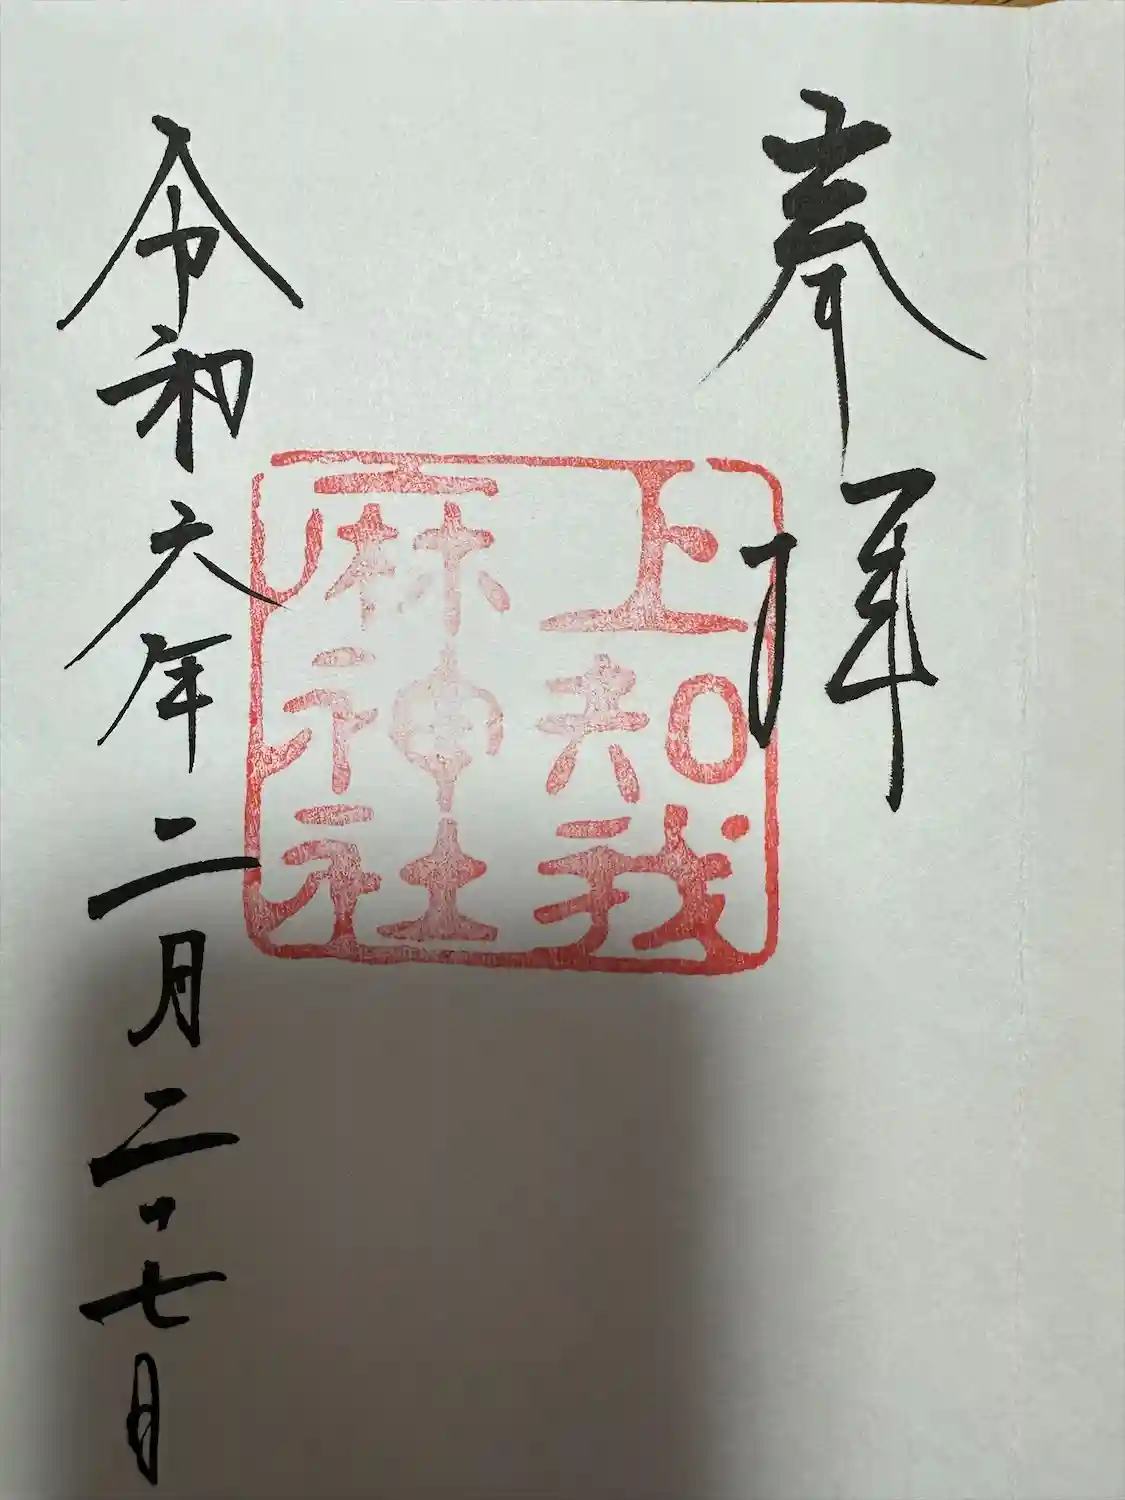 奉拝
上知我
麻神社
令和六年二月二十七日